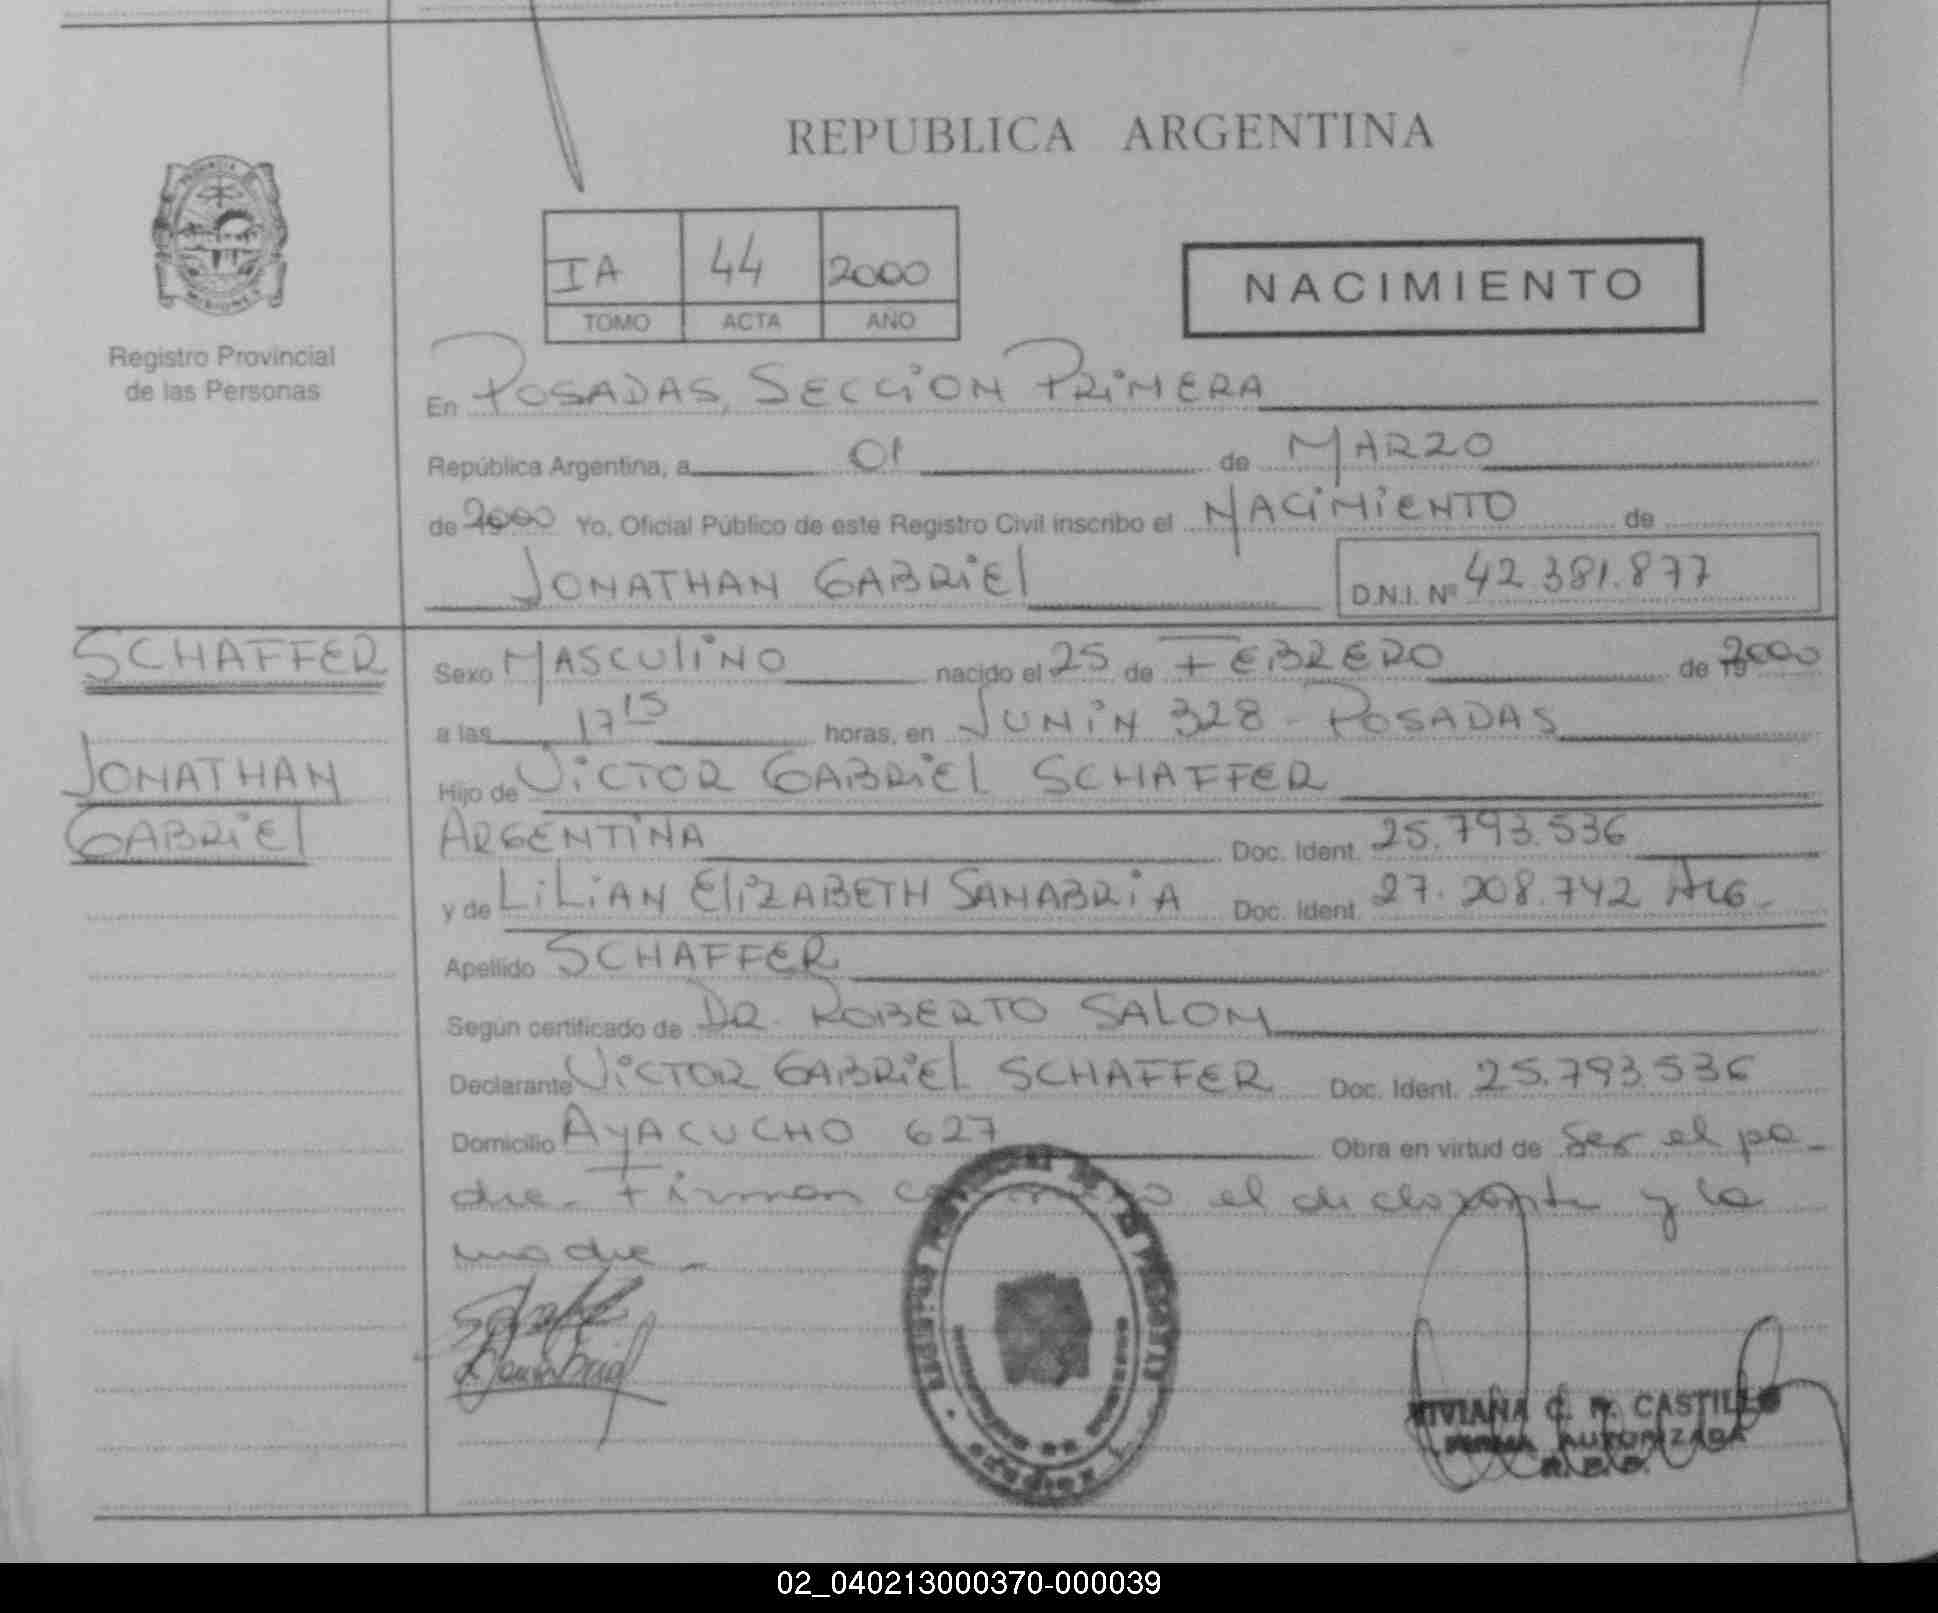 REPUBLICA ARGENTINA
PROVINCIA
MISIONES
Registro Provincial
de las Personas
IA 44 2000
TOMO ACTA AÑO
NACIMIENTO
En POSADAS, SECCION PRIMERA
República Argentina, a 01 de MARZO
de 2000 Yo, Oficial Público de este Registro Civil inscribo el NACIMIENTO de
JONATHAN GABRIEL D.N.I. Nº 42.381.877
SCHAFFER
JONATHAN
GABRIEL
Sexo MASCULINO nacido el 25 de FEBRERO de 2000
a las 17 15 horas, en JUNIN 328 - POSADAS
Hijo de VICTOR GABRIEL SCHAFFER
ARGENTINA Doc. Ident. 25.793.536
y de LILIAN ELIZABETH SANABRIA Doc. Ident. 27.208.742 ARG.
Apellido SCHAFFER
Según certificado de DR. ROBERTO SALOM
Declarante VICTOR GABRIEL SCHAFFER Doc. Ident. 25.793.536
Domicilio AYACUCHO 627 Obra en virtud de ser el pa-
dre - Firman el declarante y la
madre -
VIVIANA C. CASTILLO
FIRMA AUTORIZADA
02_040213000370-000039